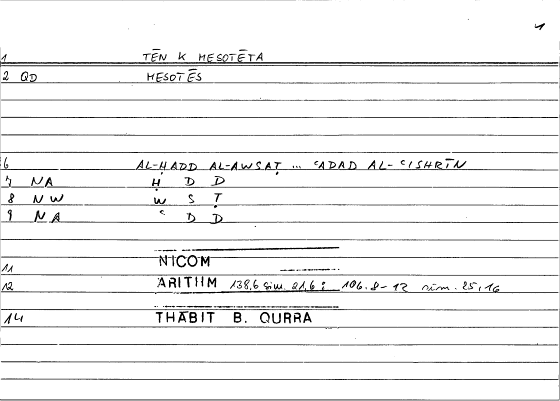 1
1 TĒN K MESOTĒTA
2 QD MESOTĒS
6 AL-ḤADD AL-AWSAṬ ... ʿADAD AL-ʿISHRĪN
7 NA Ḥ D D
8 NW W S Ṭ
9 NA ʿ D D
11 NICOM
12 ARITHM 138,6 sim. 21,6 : 106.8-12 sim. 25,16
14 THĀBIT B. QURRA